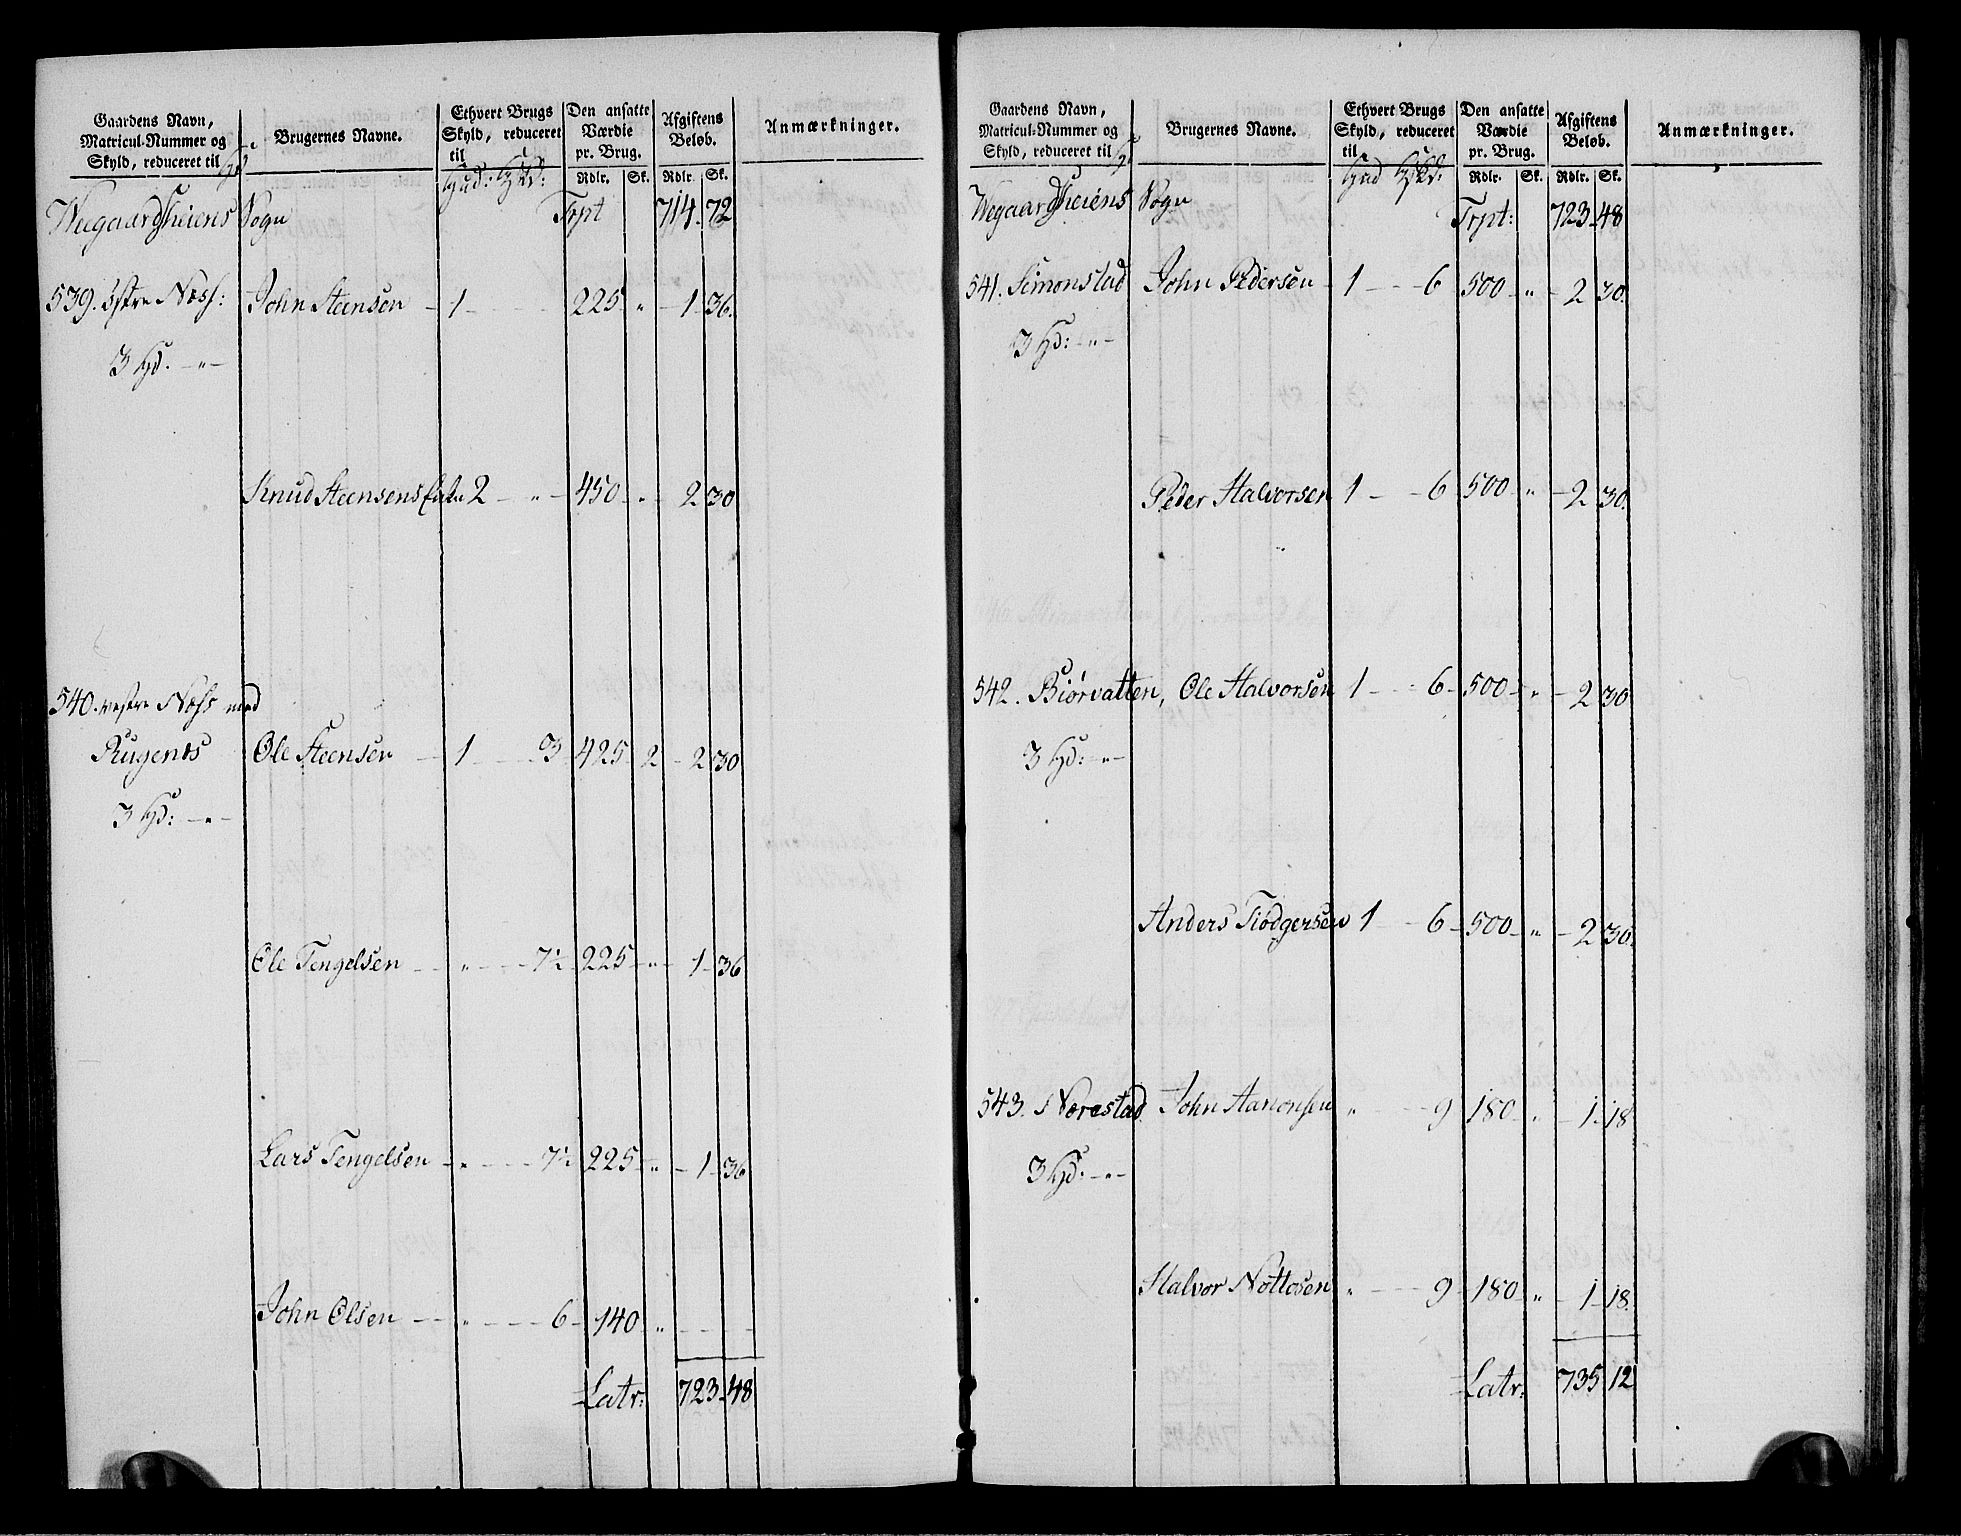 Gaardens Navn, Matricul-Nummer og Skyld, reduceret til Hd.
Brugernes Navne.
Ethvert Brugs Skyld, reduceret til
Hud: Skd:
Den ansatte Værdie pr. Brug.
Rdlr. Sk.
Afgiftens Beløb.
Rdlr. Sk.
Anmærkninger.
Wegaardsheiens Sogn Trpt 714. 72
539. østre Næss: John Steensen - 1 - 225 " 1 36.
3 Hd. - " -
Knud Steensens Enke 2 - " - 450 - " 2 30
540. vestre Næss med
Rugenes Ole Steensen 1 - 3 425 2 2 30
3 Hd: - " -
Ole Tengelsen - " - 7½ 225 - " 1 36
Lars Tengelsen - " - 7½ 225 " - 1 36
John Olsen - " - 6 - 140 " - - -
Latr: 723 48
Gaardens Navn, Matricul-Nummer og Skyld, reduceret til Hd.
Brugernes Navne.
Ethvert Brugs Skyld, reduceret til
Hud Skd:
Den ansatte Værdie pr. Brug.
Rdlr. Sk.
Afgiftens Beløb.
Rdlr. Sk.
Anmærkninger.
Wegaardsheiens Sogn Trpt: 723 48
541. Simonstad John Pedersen 1 - 6 500 " - 2 30.
3 Hd: - " -
Peder Halvorsen 1 - 6 500 - " - 2 30.
542. Biørvatten, Ole Halvorsen 1 - 6 - 500 - " - 2 30
3 Hd: - " -
Anders Tiødgersen 1 - 6 - 500 - " - 2 30.
543. Nærestad John Aanonsen " - 9 180 - " - 1. 18
3 Hd: - " -
Halvor Nottosen " - 9 - 180 - " - 1 - 18.
Latr: 735 12